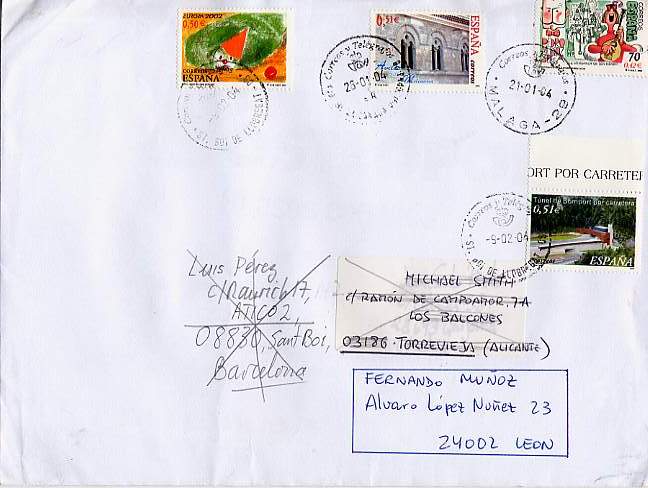 EUROPA 2002
0,50 €
CORREOS
ESPAÑA
0,51€
ESPAÑA
CORREOS
Correos y Telégrafos
23-01-04
70
0,42 €
Correos
21-01-04
MALAGA-29
ORT POR CARRETER
Túnel de Somport por carretera
0,51€
ESPAÑA
Correos y Telégrafos
-9-02-04
ST. BOI DE LLOBREGAT
ST. BOI DE LLOBREGAT
Luis Pérez
c/Mauricì 17,
ATICO 2,
08830, Sant Boi,
Barcelona
MICHAEL SMITH
c/ RAMÓN DE CAMPOAMOR, 7A
LOS BALCONES
03186-TORREVIEJA (ALICANTE)
FERNANDO MUÑOZ
Alvaro López Nuñez 23
24002 LEON